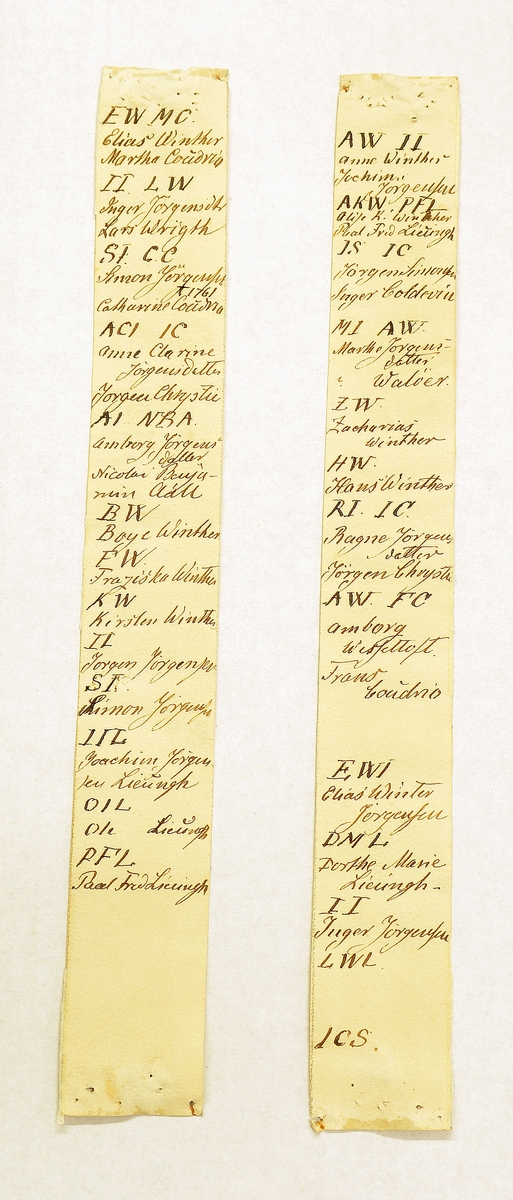 EW MC.
Elias Winther
Martha Coüdrio
II LW
Inger Jörgensdtr
Lars Wrigth
SI. CC
Simon Jörgensen
† 1761
Catharine Coüdrio
ACI IC
Anne Clarine
Jörgensdatter
Jörgen Chrystie
AI NBA.
Amborg Jörgens
datter
Nicolai Benja-
min Aall
BW
Boye Winther
FW.
Fraziska Winther
KW
Kirsten Winther
II
Jörgen Jörgensen
SI.
Simon Jörgensen
IIL
Joachim Jörgen
sen Lieüngh
OIL
Ole Lieüngh
PFL
Paal Fred Lieüngh
AW II
Anne Winther
Jochim
Jörgensen
AKW PFL
K. Winther
Paal Fred Lieüngh
IS IC
Jörgen Simonsen
Inger Coldevin
MI AW.
Marthe Jörgens-
datter
Walöer.
ZW.
Zacharias
Winther
HW.
Hans Winther
RI. IC.
Ragne Jörgens
datter
Jörgen Chrystie
AW. FC
Amborg
Wesseltoft.
Frans
Coüdrio
EWI
Elias Winter
Jörgensen
DML
Dorthe Marie
Lieüngh-
II
Inger Jörgensen
LWL.
ICS.